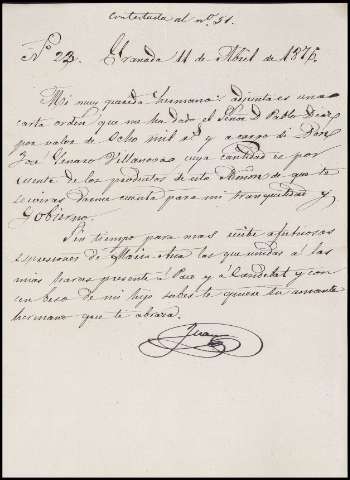 Contestada al nº. 51.
Nº 23. Granada 11 de Abril de 1876.
Mi muy querida hermana: adjunta es una
carta orden que me ha dado el Señor D. Pablo Diaz
por valor de Ocho mil r.s y a cargo de Don
José Genaro Villanova cuya cantidad es por
cuenta de los productos de esta de que te
serviras darme cuenta para mi tranquilidad y
Gobierno.
Sin tiempo para mas recibe afectuosas
espresiones de Maria Ana las que unidas á las
mias haras presente á Paco y á Candelet y con
un beso de mi hijo sabes te quiere tu amante
hermano que te abraza.
Juan